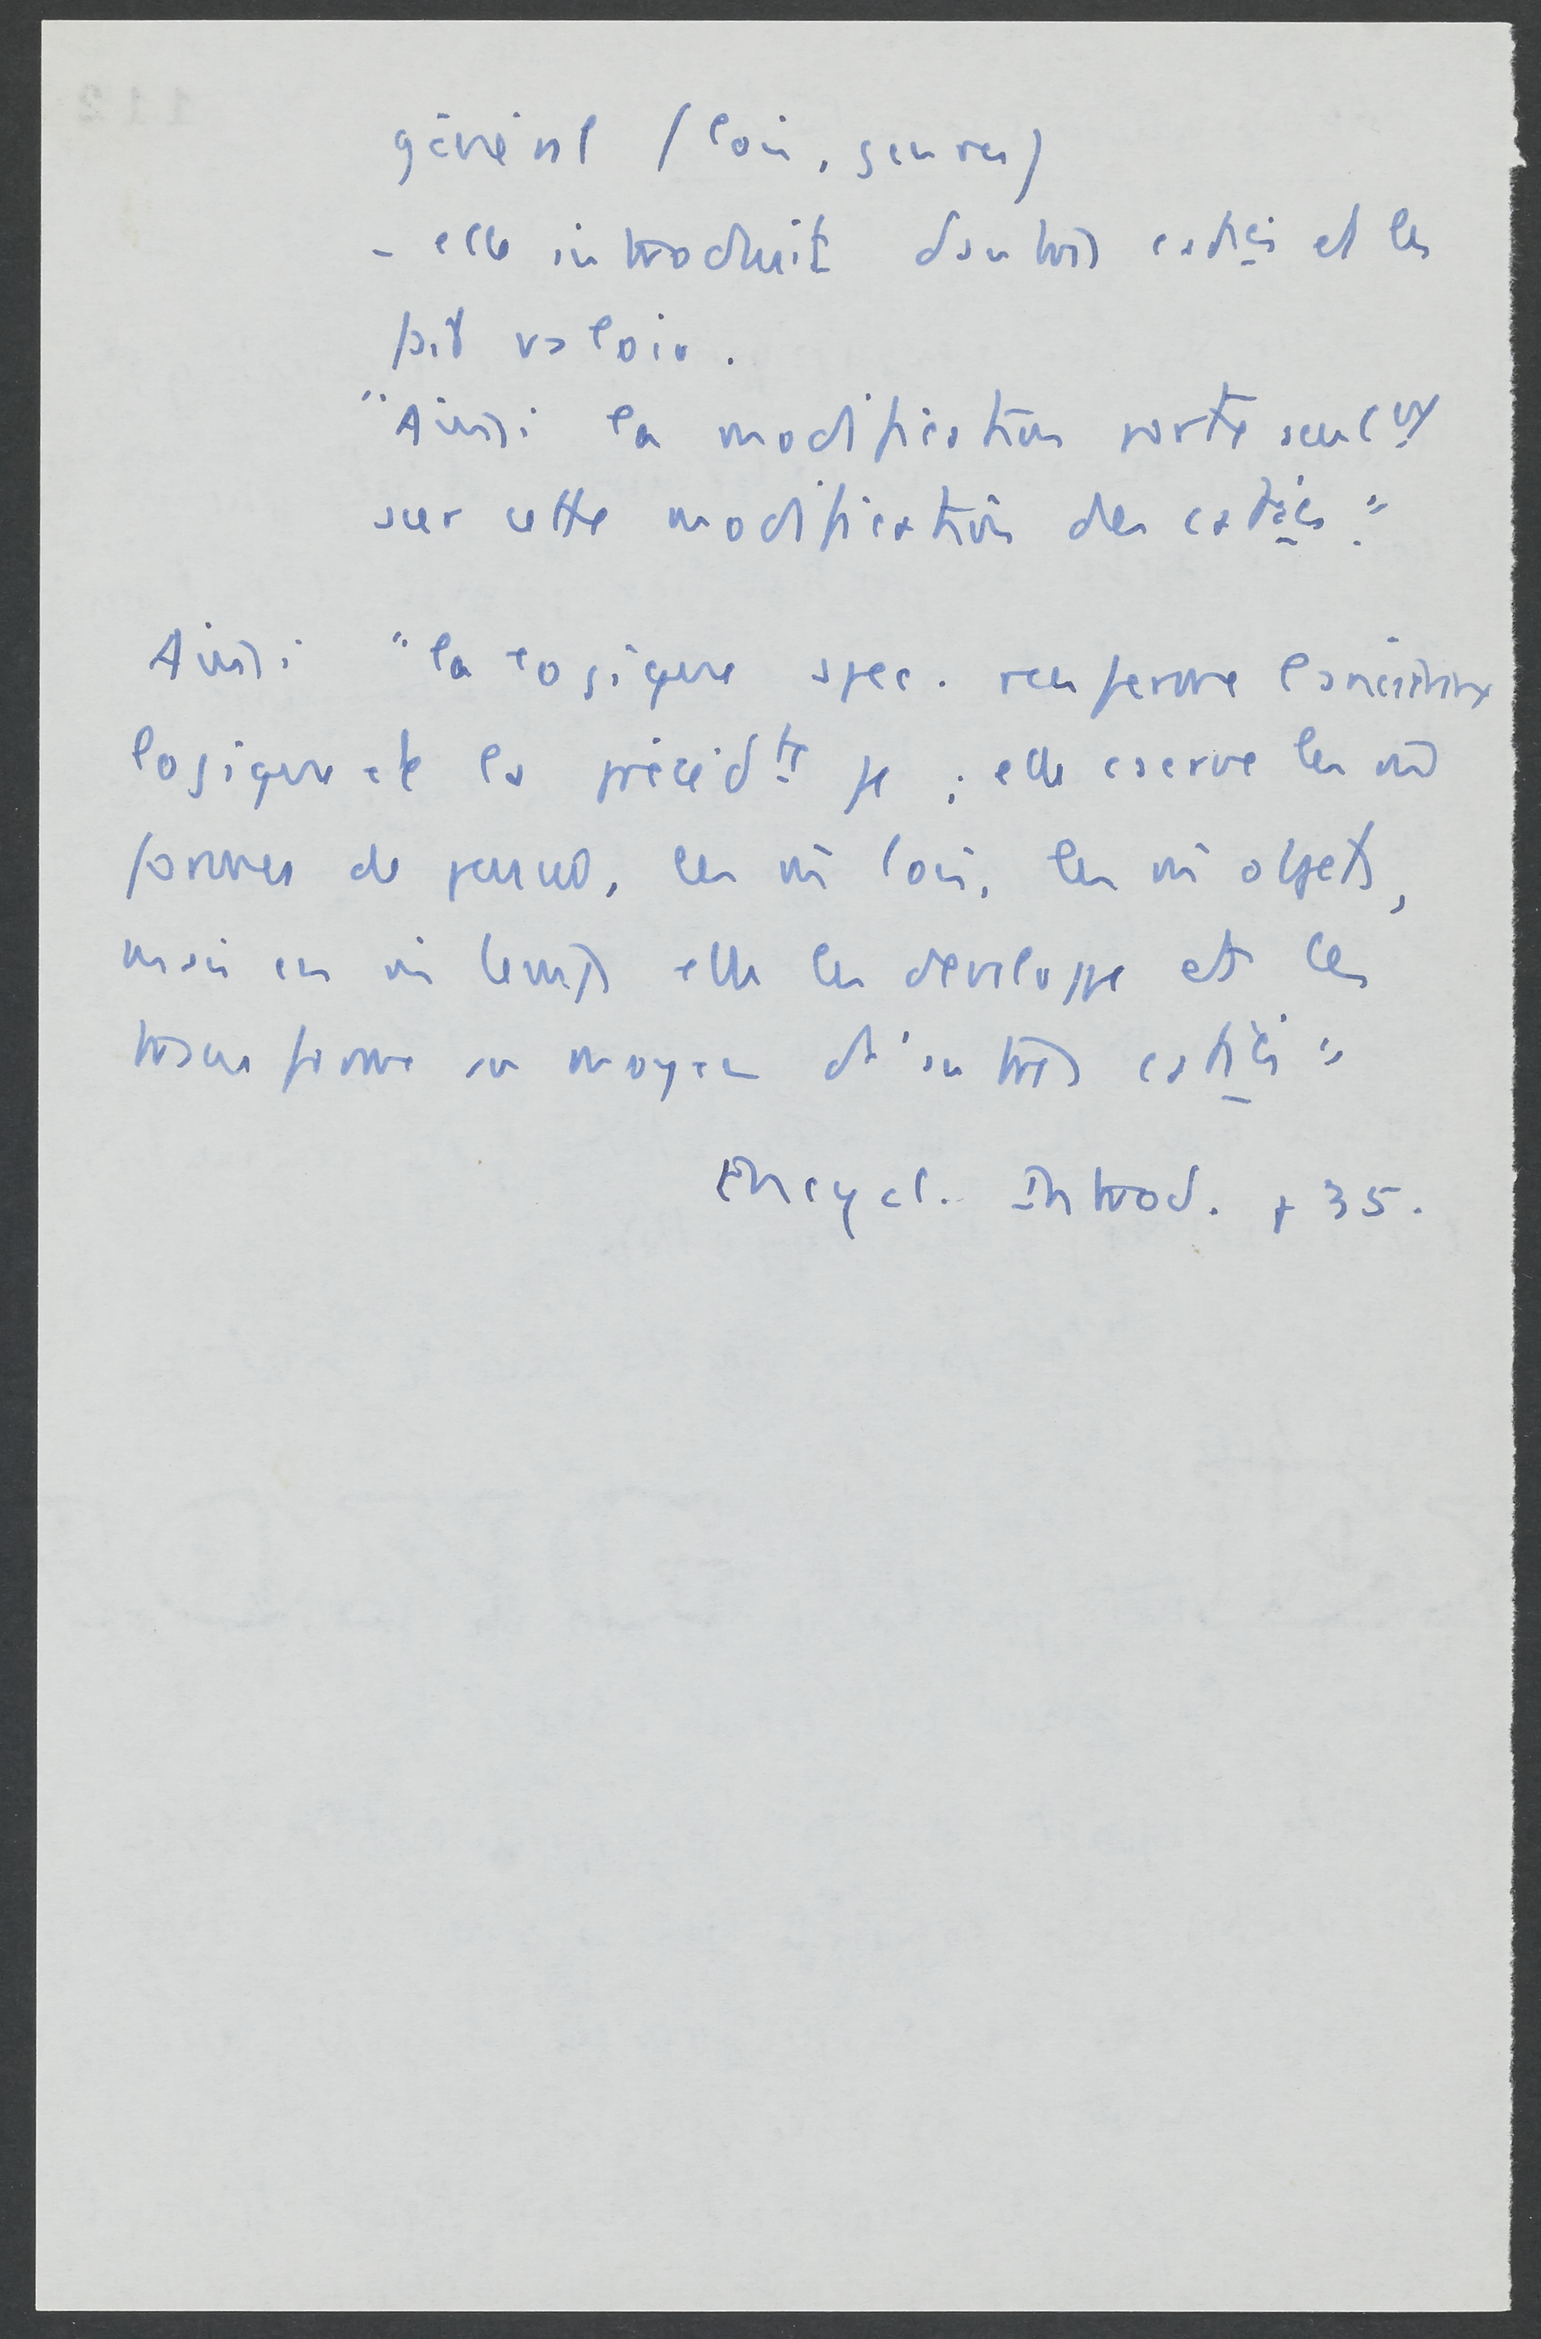 général (lois, genres)
- elle introduit d'autres catries et les
fait valoir.
"Ainsi la modification porte seult
sur cette modification des catries."
Ainsi "la logique spec. renferme l'ancienne
logique et la précédte φ ; elle cserve les m̂
formes de pensée, les m̂ lois, les m̂ objets,
mais en m̂ temps elle les développe et les
transforme au moyen d'autres catries"
Encycl. Introd. p 35.